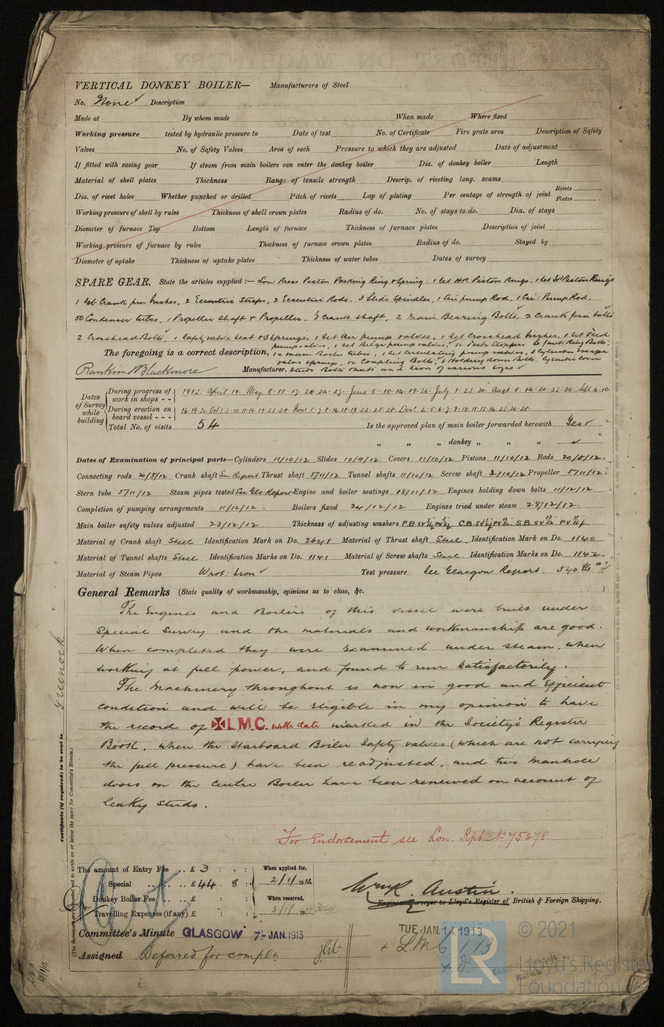 VERTICAL DONKEY BOILER— Manufacturers of Steel
No. None Description
Made at By whom made When made Where fixed
Working pressure tested by hydraulic pressure to Date of test No. of Certificate Fire grate area Description of Safety
Valves No. of Safety Valves Area of each Pressure to which they are adjusted Date of adjustment
If fitted with easing gear If steam from main boilers can enter the donkey boiler Dia. of donkey boiler Length
Material of shell plates Thickness Range of tensile strength Descrip. of riveting long. seams
Dia. of rivet holes Whether punched or drilled Pitch of rivets Lap of plating Per centage of strength of joint Rivets Plates
Working pressure of shell by rules Thickness of shell crown plates Radius of do. No. of stays to do. Dia. of stays
Diameter of furnace Top Bottom Length of furnace Thickness of furnace plates Description of joint
Working pressure of furnace by rules Thickness of furnace crown plates Radius of do. Stayed by
Diameter of uptake Thickness of uptake plates Thickness of water tubes Dates of survey
SPARE GEAR. State the articles supplied:— Low Press Piston Packing Ring & Spring 1 Set HP Piston Rings. 1 Set IP Piston Rings
1 Set Crank pin bushes, 2 Eccentric Straps, 2 Eccentric Rods. 3 Slide Spindles, 1 Air pump Rod, 1 Cir. Pump Rod.
50 Condenser tubes, 1 Propeller Shaft & Propeller. Crank Shaft, 2 Main Bearing Bolts, 2 Crank pin bolts
2 Crosshead Bolts, 1 Safety valve Seat & Springs, 1 Set Air pump valves, 1 Set Crosshead bushes, 1 Set Feed
pump valves, 1 set Bilge pump valves,
The foregoing is a correct description, 12 main Boiler tubes, 1 Set Circulating pump valves, 2 Cylinder escape
valve springs, 12 Coupling Bolts, Holding down Bolts, Cylinder Cover
Rankin & Blackmore Manufacturer. Studs Bolts & Nuts and iron of various sizes
Dates of Survey while building
During progress of work in shops - - 1912. April 19. May 8.15.17.24.29. June 5.10.14.19.26 July 1.23.30 Aug 5.16.20.22.26. Sept 6.10
During erection on board vessel - - -
Total No. of visits 54 Is the approved plan of main boiler forwarded herewith Yes
" " " donkey " " "
Dates of Examination of principal parts—Cylinders 11/10/12 Slides 10/9/12 Covers 11/10/12 Pistons 11/10/12 Rods 20/5/12
Connecting rods 20/5/12 Crank shaft See Report Thrust shaft 5/11/12 Tunnel shafts 11/10/12 Screw shaft 2/10/12 Propeller 5/11/12
Stern tube 5/11/12 Steam pipes tested See Glo. Report Engine and boiler seatings 18/11/12 Engines holding down bolts 11/12/12
Completion of pumping arrangements 11/12/12 Boilers fixed 20/12/12 Engines tried under steam 28/12/12
Main boiler safety valves adjusted 23/12/12 Thickness of adjusting washers
Material of Crank shaft Steel Identification Mark on Do. Material of Thrust shaft Steel Identification Mark on Do. 1140
Material of Tunnel shafts Steel Identification Marks on Do. 1141 Material of Screw shafts Steel Identification Marks on Do. 1142
Material of Steam Pipes Wrot. Iron Test pressure See Glasgow Report. 540 lbs
General Remarks (State quality of workmanship, opinions as to class, &c.
The Engines and Boilers of this vessel were built under
Special Survey and the materials and workmanship are good.
When completed they were examined under steam, when
working at full power, and found to run satisfactorily.
The Machinery throughout is now in good and efficient
condition and will be eligible in my opinion to have
the record of ✠L.M.C. with date marked in the Society's Register
Book, when the starboard Boiler Safety valves (which are not carrying
the full pressure) have been readjusted, and two manhole
doors on the Centre Boiler have been renewed on account of
leaky studs.
For Endorsement see Lon. Rpt. No. 75278
Greenock
Certificate (if required) to be sent to
The amount of Entry Fee .. £ 3 : : When applied for,
Special .. .. £44 . 8 : 2/1/1913
Donkey Boiler Fee .. .. £ : : When received,
Travelling Expenses (if any) £ : :
Wm R. Austin.
Engineer Surveyor to Lloyd's Register of British & Foreign Shipping.
Committee's Minute GLASGOW 7-JAN 1913
TUE. JAN 14 1913
Assigned Deferred for compln
+ LMC 1.13
LR © 2021
Lloyd's Register
Foundation